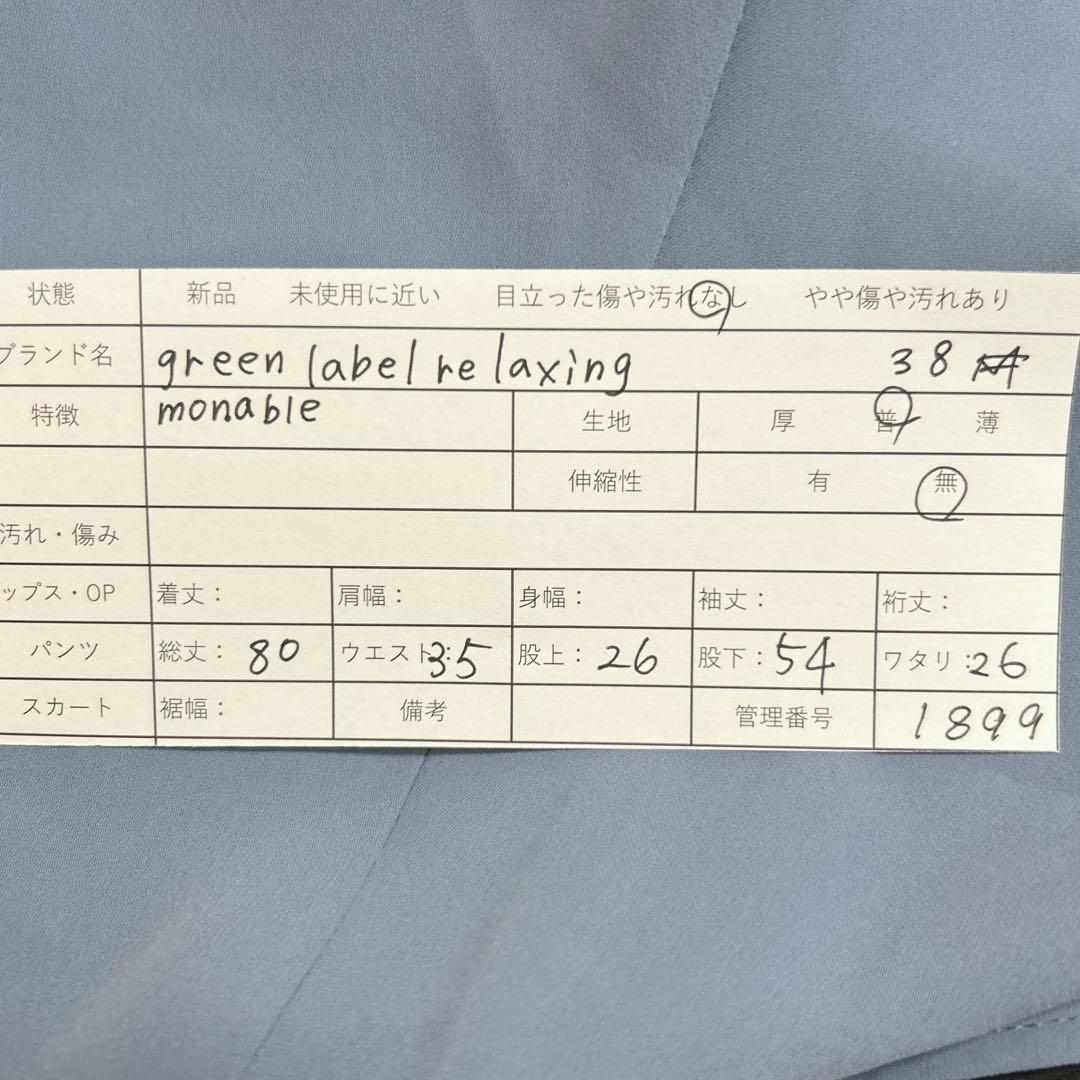 状態 新品 未使用に近い 目立った傷や汚れなし やや傷や汚れあり
ブランド名 green label relaxing 38
特徴 monable 生地 厚 普 薄
伸縮性 有 無
汚れ・傷み
ップス・OP 着丈: 肩幅: 身幅: 袖丈: 裄丈:
パンツ 総丈: 80 ウエスト: 35 股上: 26 股下: 54 ワタリ: 26
スカート 裾幅: 備考 管理番号 1899